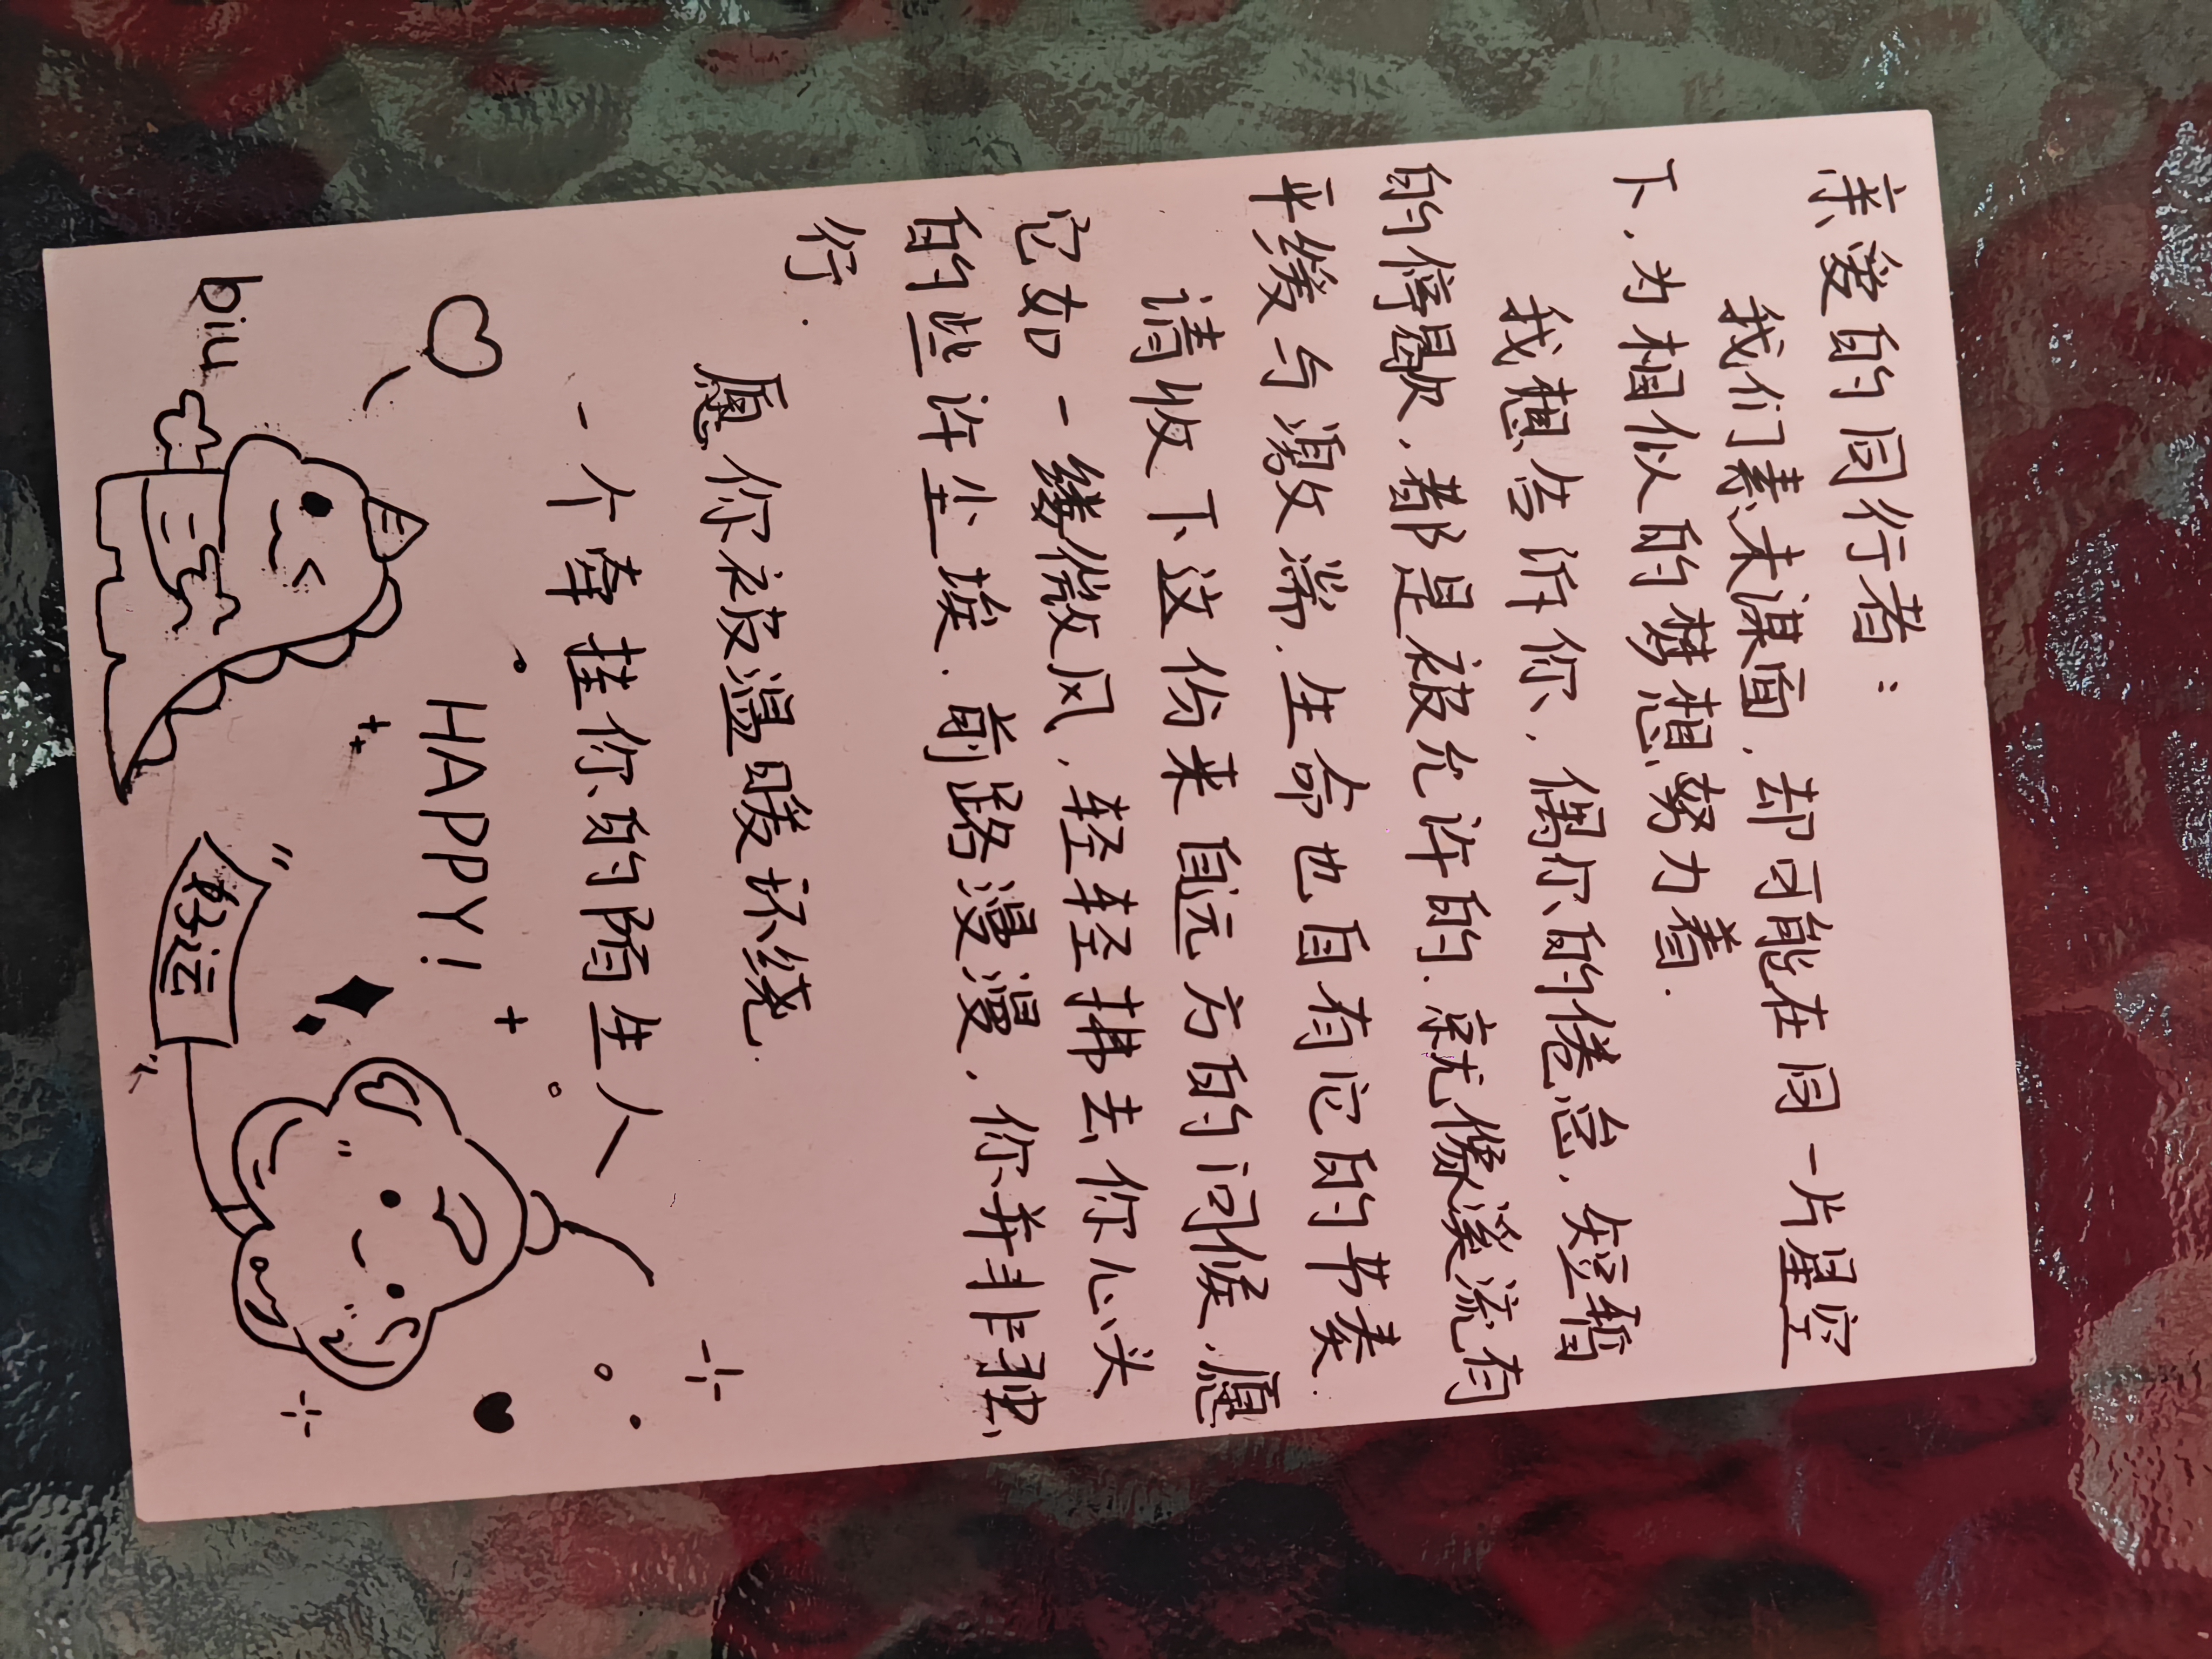 亲爱的同行者：
我们素未谋面，却可能在同一片星空
下，为相似的梦想努力着．
我想告诉你，偶尔的倦怠，短暂
的停歇，都是被允许的．就像溪流有
平缓与激湍，生命也自有它的节奏．
请收下这份来自远方的问候，愿
它如一缕微风，轻轻拂去你心头
的些许尘埃．前路漫漫，你并非独
行．
愿你被温暖环绕．
一个牵挂你的陌生人
HAPPY!
biu
好运